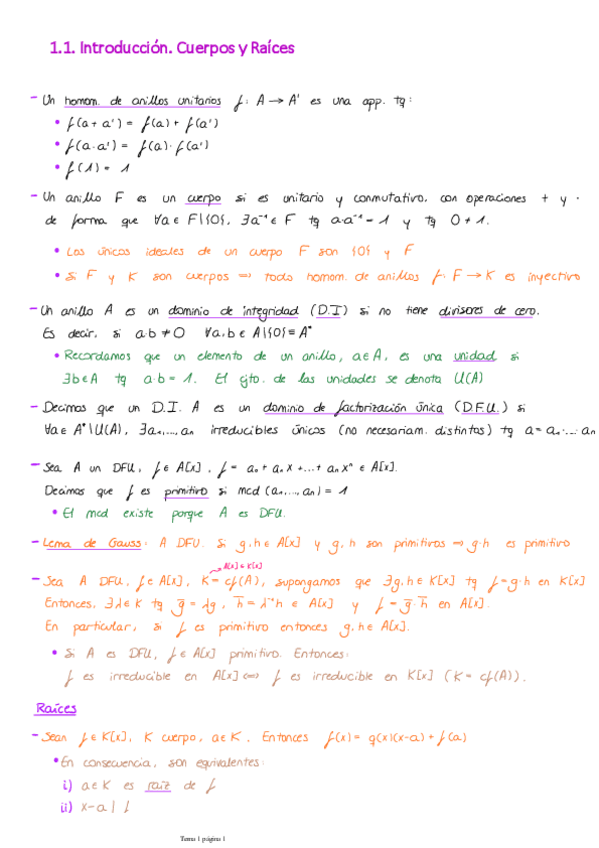 1.1. Introducción. Cuerpos y Raíces
- Un homom. de anillos unitarios f: A → A' es una app. tq:
• f(a+a') = f(a) + f(a')
• f(a·a') = f(a)·f(a')
• f(1) = 1
- Un anillo F es un cuerpo si es unitario y conmutativo, con operaciones + y ·
de forma que ∀a∈F\{0}, ∃a⁻¹∈F tq a·a⁻¹ = 1 y tq 0 ≠ 1.
• Los únicos ideales de un cuerpo F son {0} y F
• Si F y K son cuerpos ⇒ todo homom. de anillos f: F → K es inyectivo
- Un anillo A es un dominio de integridad (D.I) si no tiene divisores de cero.
Es decir, si a·b ≠ 0 ∀a,b∈A\{0} ≡ A*
• Recordamos que un elemento de un anillo, a∈A, es una unidad si
∃b∈A tq a·b = 1. El cjto. de las unidades se denota U(A)
- Decimos que un D.I. A es un dominio de factorización única (D.F.U.) si
∀a∈A*\U(A), ∃a₁,...,aₙ irreducibles únicos (no necesariam. distintos) tq a = a₁·...·aₙ
- Sea A un DFU, f∈A[x], f = a₀ + a₁x + ... + aₙxⁿ ∈ A[x].
Decimos que f es primitivo si mcd(a₀,...,aₙ) = 1
• El mcd existe porque A es DFU.
- Lema de Gauss: A DFU. Si g,h∈A[x] y g,h son primitivos ⇒ g·h es primitivo
A[x] ⊆ K[x]
- Sea A DFU, f∈A[x], K = cf(A), supongamos que ∃g,h∈K[x] tq f=g·h en K[x]
Entonces, ∃λ∈K tq g̅ = λg, h̅ = λ⁻¹h ∈ A[x] y f = g̅·h̅ en A[x].
En particular, si f es primitivo entonces g,h∈A[x].
• Si A es DFU, f∈A[x] primitivo. Entonces:
f es irreducible en A[x] ⇔ f es irreducible en K[x] (K = cf(A)).
Raíces
- Sean f∈K[x], K cuerpo, a∈K. Entonces f(x) = q(x)(x-a) + f(a)
• En consecuencia, son equivalentes:
i) a∈K es raíz de f
ii) x-a | f
Tema 1 página 1